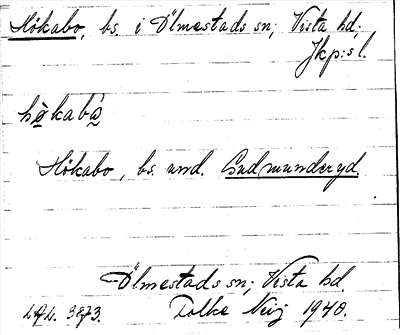 Hökabo, bs. i Ölmestads sn; Vista hd;
Jkp:s l.
hö̀kabá̀
Hökabo, bs. und. Gudmunderyd.
Ölmestads sn; Vista hd.
3873. Folke Neij 1940.